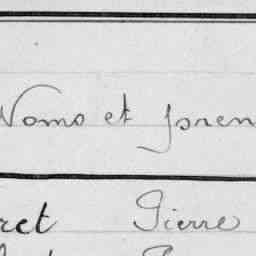 Noms et pren
ret Pierre